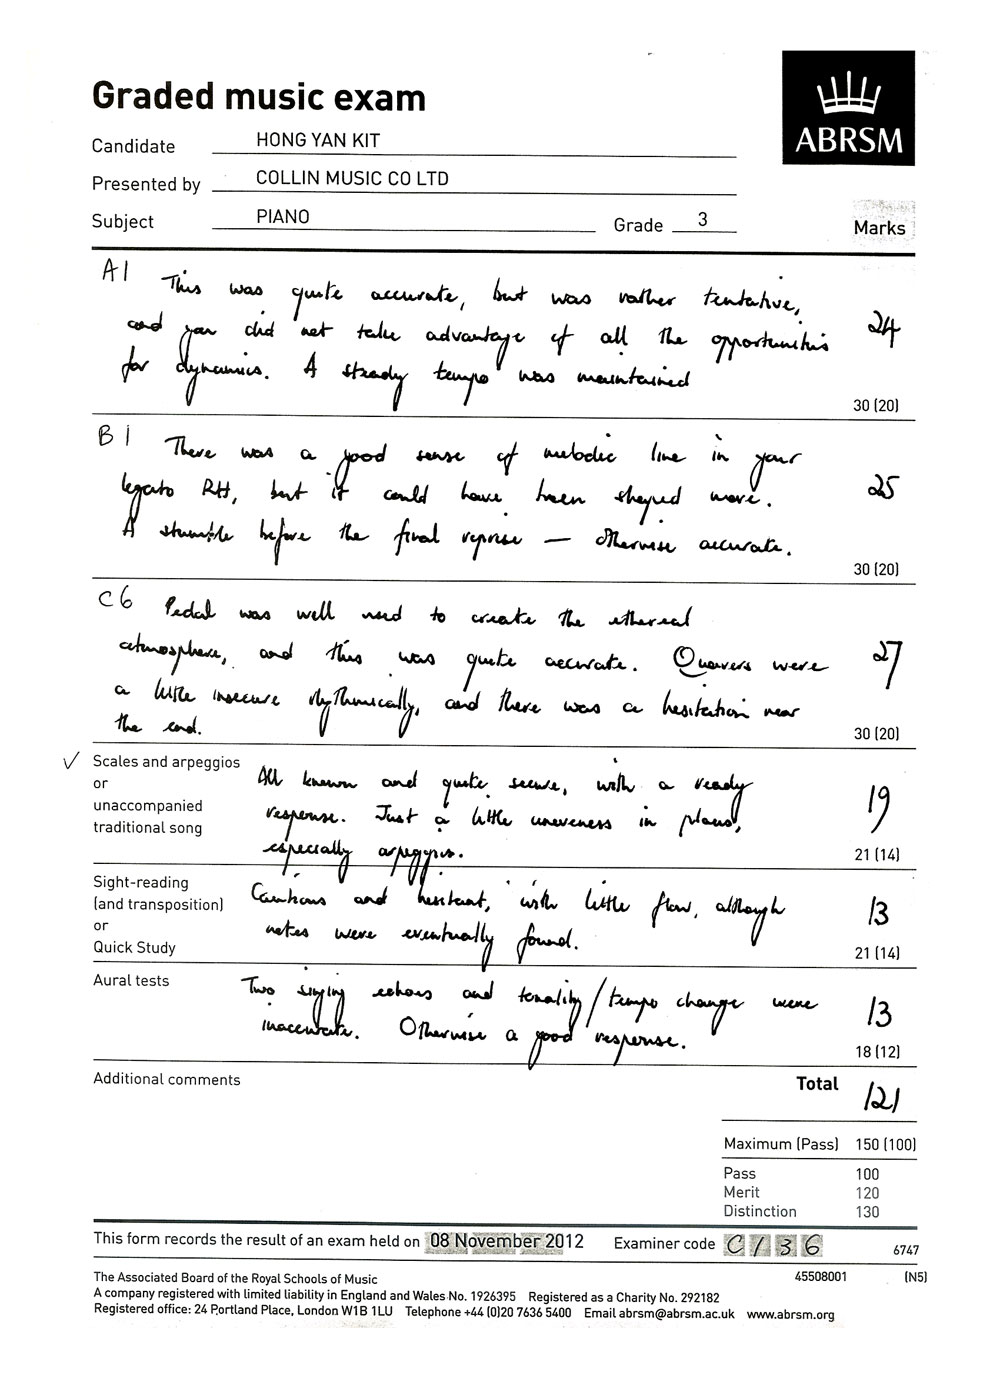 Graded music exam
ABRSM
Candidate HONG YAN KIT
Presented by COLLIN MUSIC CO LTD
Subject PIANO Grade 3
Marks
A1 This was quite accurate, but was rather tentative,
and you did not take advantage of all the opportunities
for dynamics. A steady tempo was maintained
24
30 (20)
B1 There was a good sense of melodic line in your
legato RH, but it could have been shaped more.
A stumble before the final reprise — otherwise accurate.
25
30 (20)
C6 Pedal was well used to create the ethereal
atmosphere, and this was quite accurate. Quavers were
a little insecure rhythmically, and there was a hesitation near
the end.
27
30 (20)
✓ Scales and arpeggios
or
unaccompanied
traditional song
All known and quite secure, with a ready
response. Just a little uneveness in places,
especially arpeggios.
19
21 (14)
Sight-reading
(and transposition)
or
Quick Study
Cautious and hesitant, with little flow, although
notes were eventually found.
13
21 (14)
Aural tests
Two singing echoes and tonality/tempo change were
inaccurate. Otherwise a good response.
13
18 (12)
Additional comments
Total 121
Maximum (Pass) 150 (100)
Pass 100
Merit 120
Distinction 130
This form records the result of an exam held on 08 November 2012 Examiner code C136
6747
45508001 (N5)
The Associated Board of the Royal Schools of Music
A company registered with limited liability in England and Wales No. 1926395 Registered as a Charity No. 292182
Registered office: 24 Portland Place, London W1B 1LU Telephone +44 (0)20 7636 5400 Email abrsm@abrsm.ac.uk www.abrsm.org